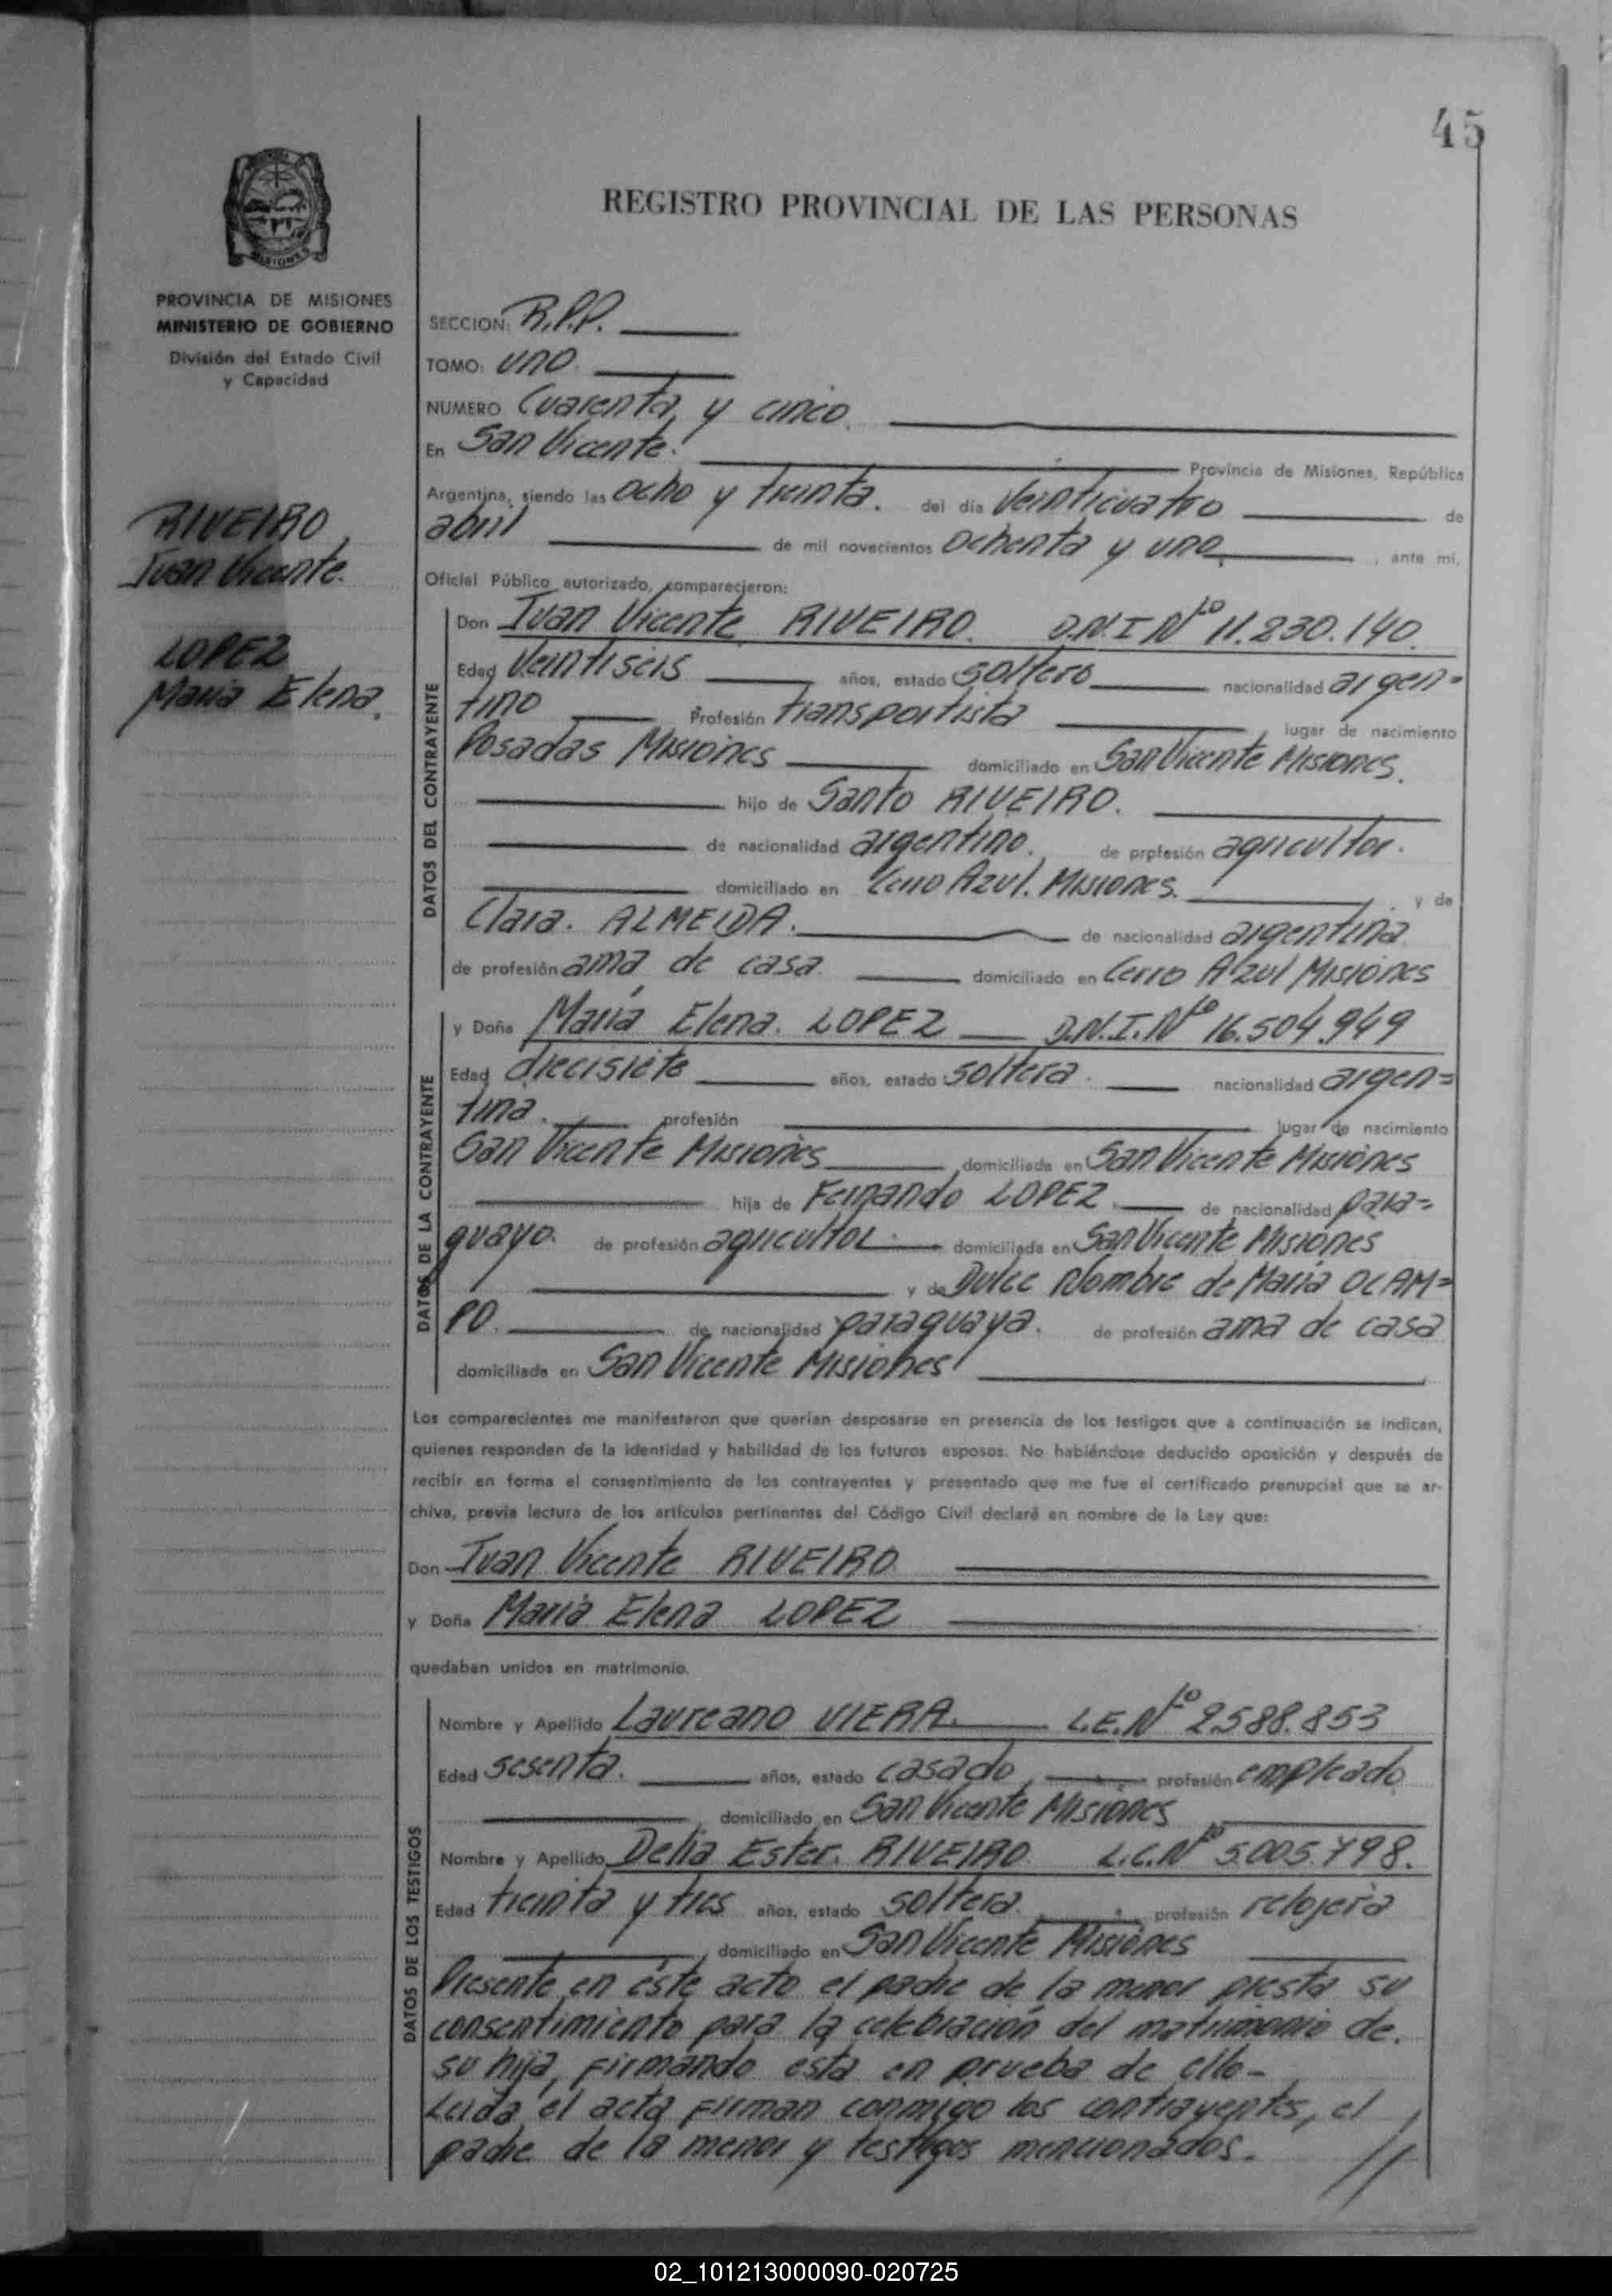 45
REGISTRO PROVINCIAL DE LAS PERSONAS
PROVINCIA DE MISIONES
MINISTERIO DE GOBIERNO
División del Estado Civil
y Capacidad
RIVEIRO,
Juan Vicente.
LOPEZ
María Elena.
SECCION: R.P.P.
TOMO: uno.
NUMERO Cuarenta y cinco.
En San Vicente. Provincia de Misiones, República
Argentina, siendo las ocho y treinta. del día veinticuatro de
abril de mil novecientos ochenta y uno, ante mí,
Oficial Público autorizado, comparecieron:
DATOS DEL CONTRAYENTE
Don Juan Vicente RIVEIRO. D.N.I Nº 11.230.140.
Edad Veintiseis años, estado soltero nacionalidad argen=
tino Profesión transportista, lugar de nacimiento
Posadas Misiones domiciliado en San Vicente Misiones.
hijo de Santo RIVEIRO.
de nacionalidad argentino. de profesión agricultor.
domiciliado en Cerro Azul. Misiones. y de
Clara. ALMEIDA. de nacionalidad argentina
de profesión ama de casa. domiciliado en Cerro Azul Misiones
DATOS DE LA CONTRAYENTE
y Doña María Elena. LOPEZ D.N.I. Nº 16.504.949
Edad diecisiete años, estado soltera. nacionalidad argen=
tina. profesión lugar de nacimiento
San Vicente Misiones domiciliada en San Vicente Misiones
hija de Fernando LOPEZ. de nacionalidad para=
guayo. de profesión agricultor. domiciliada en San Vicente Misiones
y de Dulce Nombre de María OCAM=
PO. de nacionalidad paraguaya. de profesión ama de casa
domiciliada en San Vicente Misiones
Los comparecientes me manifestaron que querían desposarse en presencia de los testigos que a continuación se indican,
quienes responden de la identidad y habilidad de los futuros esposos. No habiéndose deducido oposición y después de
recibir en forma el consentimiento de los contrayentes y presentado que me fue el certificado prenupcial que se ar-
chiva, previa lectura de los artículos pertinentes del Código Civil declaré en nombre de la Ley que:
Don Juan Vicente RIVEIRO
y Doña María Elena LOPEZ
quedaban unidos en matrimonio.
DATOS DE LOS TESTIGOS
Nombre y Apellido Laureano VIERA. L.E. Nº 2588.853
Edad sesenta. años, estado casado, profesión empleado
domiciliado en San Vicente Misiones
Nombre y Apellido Delia Ester. RIVEIRO L.C. Nº 5.005.798.
Edad treinta y tres años, estado soltera. profesión relojera
domiciliado en San Vicente Misiones
Presente en éste acto el padre de la menor presta su
consentimiento para la celebración del matrimonio de.
su hija, firmando esta en prueba de ello-
Leida el acta firman conmigo los contrayentes, el
padre de la menor y testigos mencionados. //
02_101213000090-020725